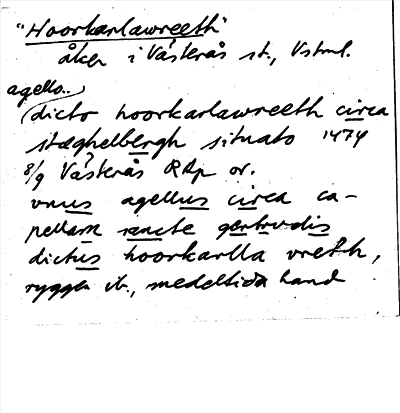 "Hoorkarlawreeth"
åker i Västerås st., Vstml.
agello..
(dicto hoorkarlawreeth circa
stæghelbergh situato 1474
8/9 Västerås RAp or.
vnus agellus circa ca-
pellam sancte gertrudis
dictus hoorkarlla vreth,
ryggen ib., medeltida hand